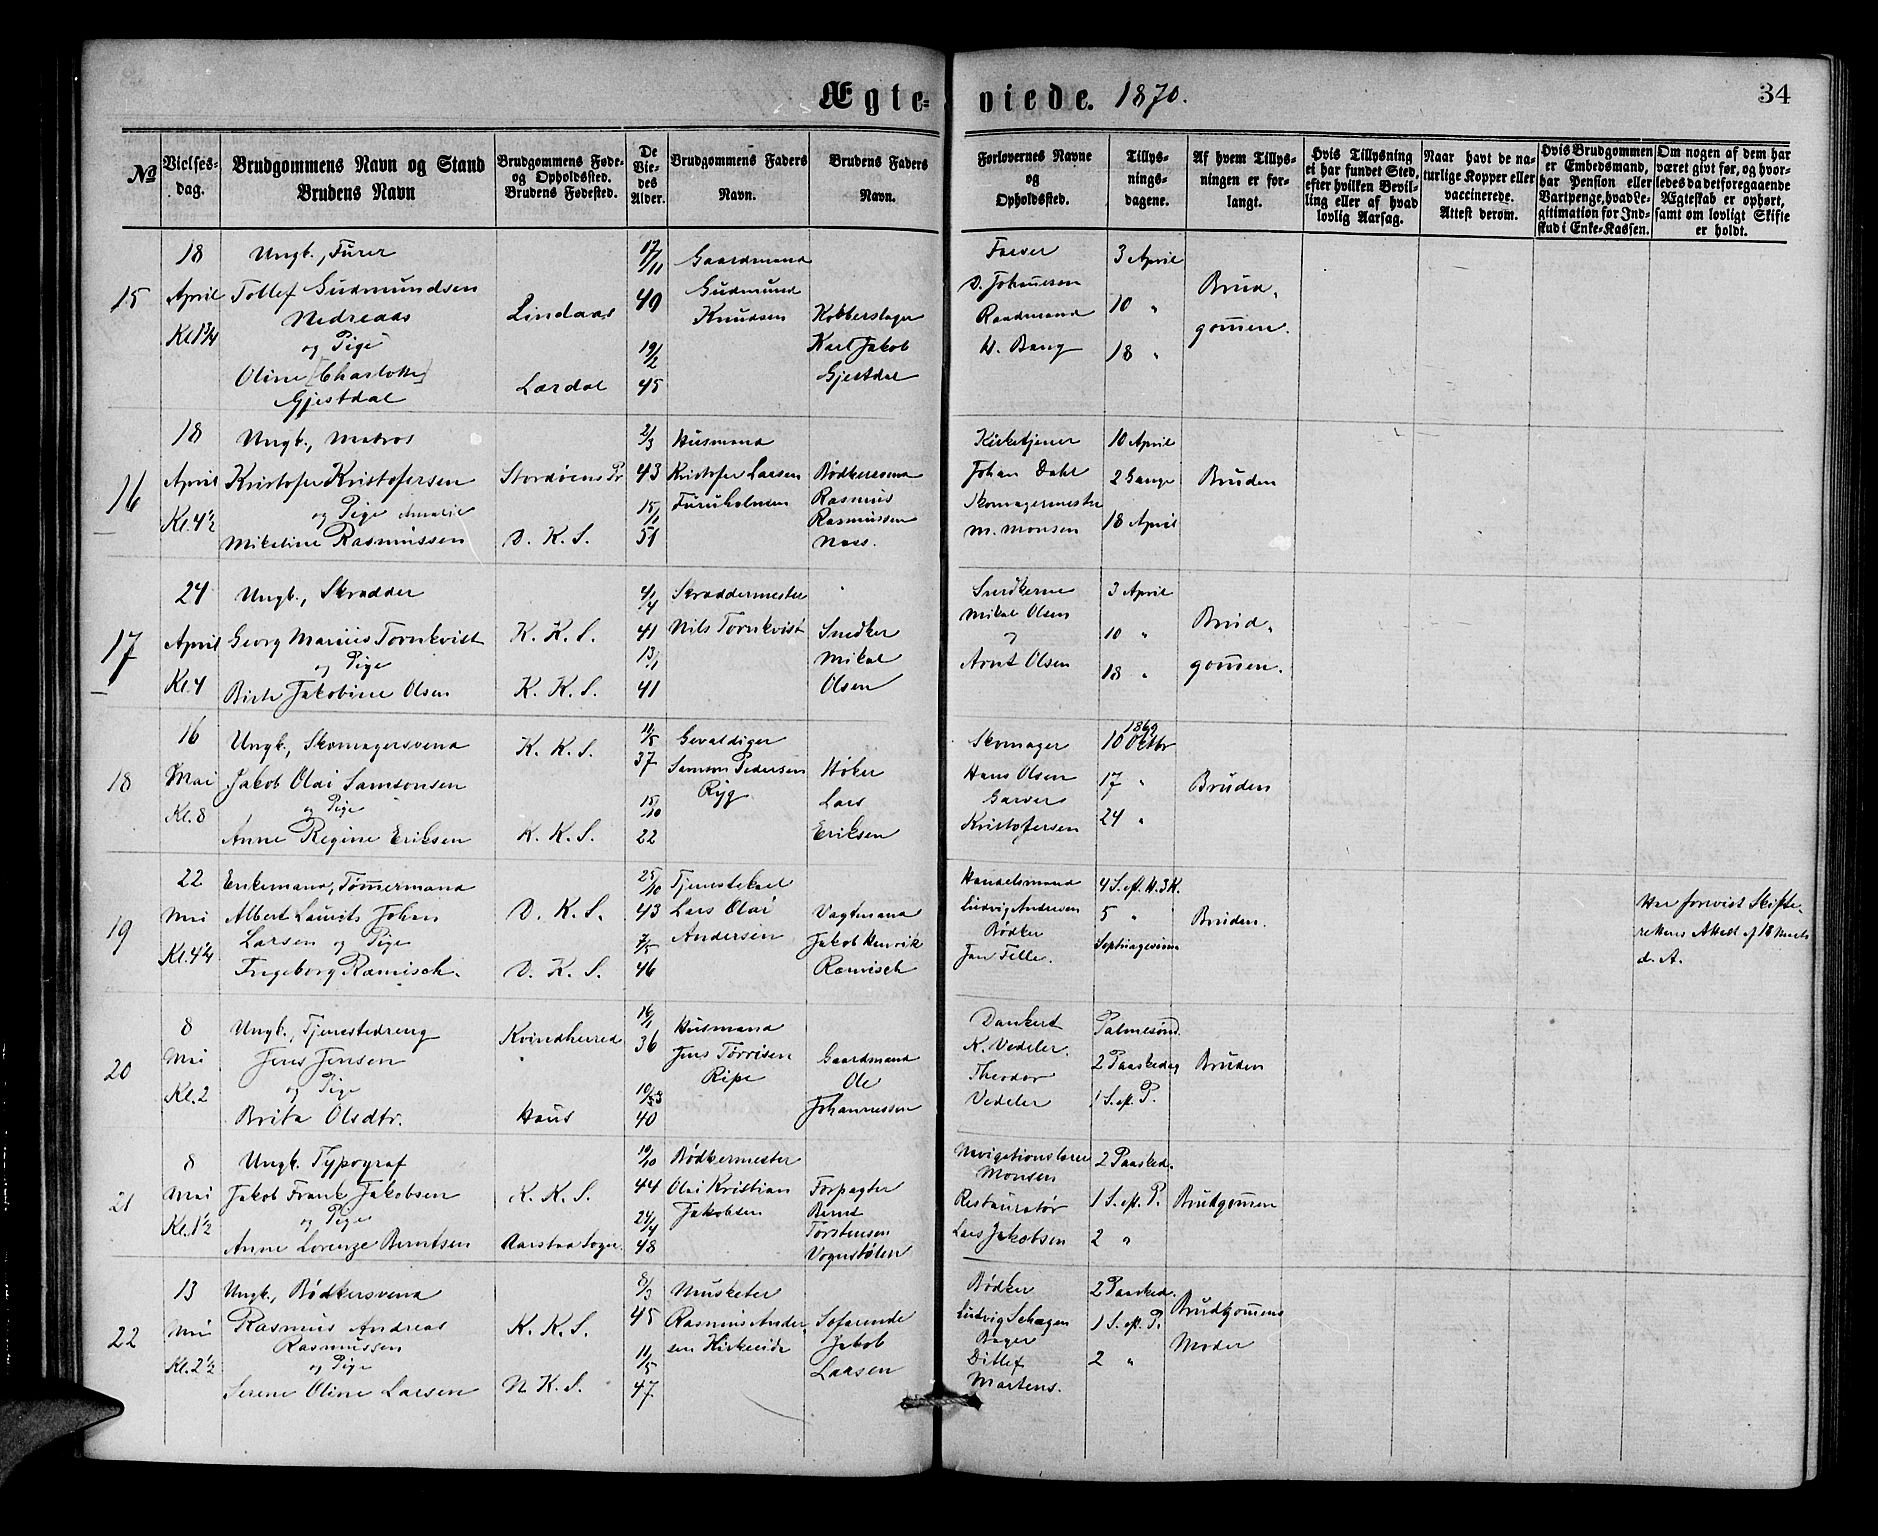 Ægte- viede. 1870.
34
№
Vielses-
dag.
Brudgommens Navn og Stand
Brudens Navn
Brudgommens Føde-
og Opholdssted.
Brudens Fødested.
De
Vie-
des
Alder.
Brudgommens Faders
Navn.
Brudens Faders
Navn.
Forlovernes Navne
og
Opholdssted.
Tillys-
nings-
dagene.
Af hvem Tillys-
ningen er for-
langt.
Hvis Tillysning
ei har fundet Sted,
efter hvilken Bevil-
ling eller af hvad
lovlig Aarsag.
Naar havt de na-
turlige Kopper eller
vaccinerede.
Attest derom.
Hvis Brudgommen
er Embedsmand,
har Pension eller
Vartpenge, hvad Le-
gitimation for Ind-
skud i Enke-Kassen.
Om nogen af dem har
været givt før, og hvor-
ledes da det foregaaende
Ægteskab er ophørt,
samt om lovligt Skifte
er holdt.
15
18
April
Ungk., Furer
Tollef Gudmundsen
Nedreaas
og Pige
Oline [Charlotte]
Gjestdal
Lindaas
Lærdal
17/11
40
19/2
45
Gaardmand
Gudmund
Knudsen
Kobberslager
Karl Jakob
Gjestdal
Farver
D. Johannesen
Raadmand
H. Bang
3 April
10 "
18 "
Brud-
gommen.
16
18
April
Kl. 4½
Ungk., Matros
Kristofer Kristofersen
og Pige Amalie
Mikeline Rasmussen
Stordøens Pr
D. K. S.
2/3
43
15/1
51
Husmand
Kristofer Larsen
Furuholmen
Bødkersvend
Rasmus
Rasmussen
Ness.
Kirketjener
Johan Dahl
Skomagermester
M. Monsen
10 April
2 Gange
18 April
Bruden
17
24
April
Kl. 4
Ungk., Skrædder
Georg Marius Tornkvist
og Pige
Birte Jakobine Olsen
K. K. S.
K. K. S.
4/4
41
13/1
41
Skræddermester
Nils Tornkvist
Snedker
Mikal
Olsen
Snedkerne
Mikal Olsen
og
Arnt Olsen
3 April
10 "
18 "
Brud-
gommen.
18
16
Mai
Kl. 8
Ungk., Skomagersvend
Jakob Olai Samsonsen
og Pige
Anne Regine Eriksen
K. K. S.
K. K. S.
11/5
37
15/10
22
Gevaldiger
Samson Pedersen
Ryg
Høker
Lars
Eriksen
Skomager
Hans Olsen
Garver
Kristofersen
1869
10 Octbr
17 "
24 "
Bruden
19
22
Mai
Kl. 4¼
Enkemand, Tømmermand
Albert Laurits Johan
Larsen og Pige
Ingeborg Ramisch.
D. K. S.
D. K. S.
25/10
43
7/5
46
Tjenestekarl
Lars Olai
Andersen
Vagtmand
Jakob Henrik
Ramisch
Handelsmand
Ludvig Andersen
Bødker
Jan Felle.
4 S. eft. H. 3 K.
5 "
Septuagesima
Bruden.
Har forevist Skifte-
rettens Attest af 18 Marts
d. A.
20
8
Mai
Kl. 2
Ungk., Tjenestedreng
Jens Jensen
og Pige
Brita Olsdtr.
Kvindherred
Haus
16/1
36
40
Husmand
Jens Tørrisen
Ripe
Gaardmand
Ole
Johannessen
Dankert
K. Vedeler.
Theodor
Vedeler
Palmesønd.
2 Paaskedag
1 S. eft. P.
Bruden
21
8
Mai
Kl. 1½
Ungk. Typograf
Jakob Frank Jakobsen
og Pige
Anne Lorenze Berntsen
K. K. S.
Aarstad Sogn.
19/10
44
24/4
48
Bødkermester
Olai Kristian
Jakobsen
Forpagter
Bernt
Torstensen
Vognstølen
Navigationslærer
Monsen
Restauratør
Lars Jakobsen
2 Paasked.
1 S. eft. P.
2 "
Brudgommen
22
13
Mai
Kl. 2½
Ungk., Bødkersvend
Rasmus Andreas
Rasmussen
og Pige
Serene Oline Larsen
K. K. S.
N. K. S.
8/3
45
11/5
47
Musketer
Rasmus Ander-
sen Kirkeeide
Søfarende
Jakob
Larsen
Bødker
Ludvig Schagen
Bager
Ditlef
Martens.
2 Paasked.
1 S. eft. P.
2 "
Brudgommens
Moder